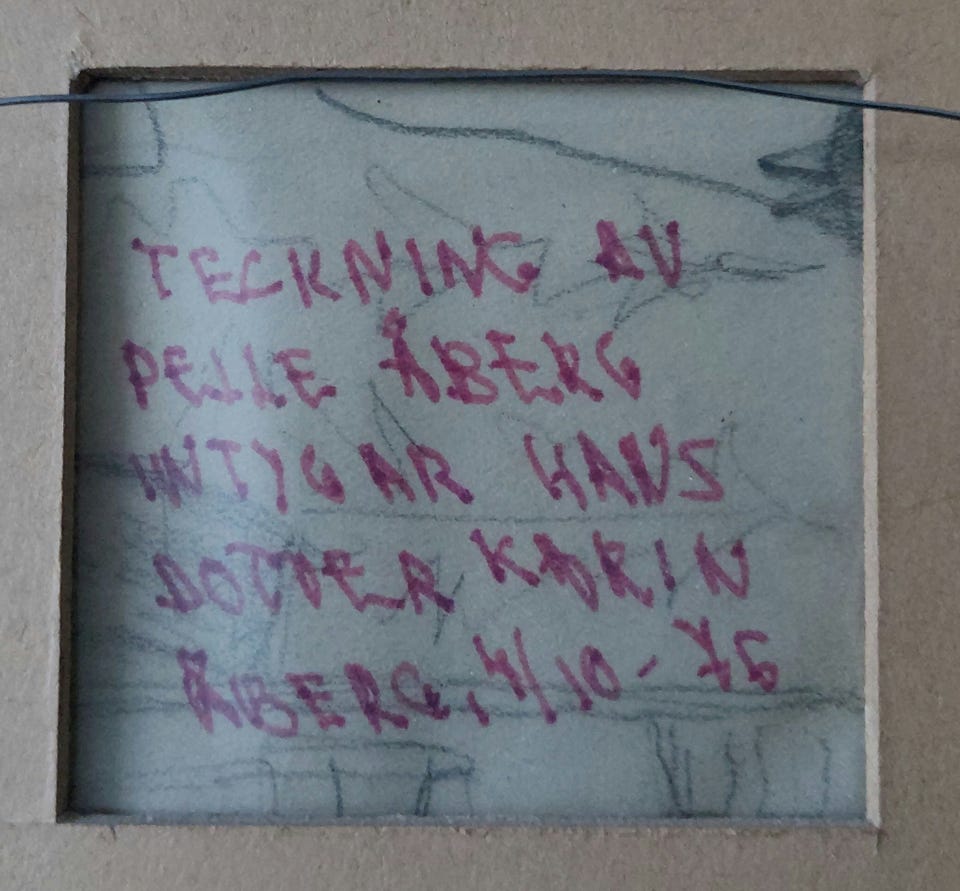 TECKNING AV
PELLE ÅBERG
INTYGAR HANS
DOTTER KARIN
ÅBERG, 4/10 - 75